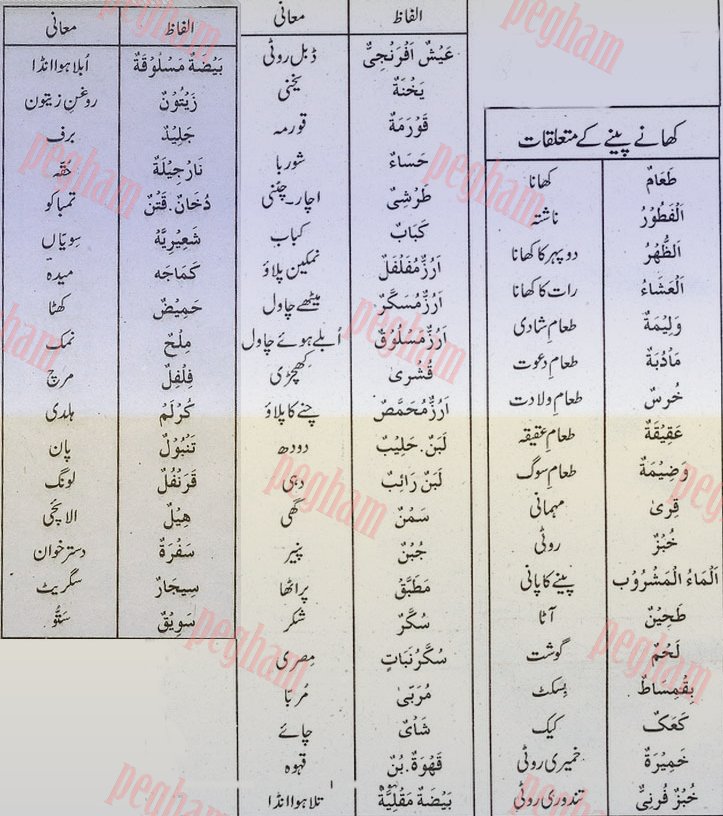 کھانے پینے کے متعلقات
طَعَامٌ کھانا
اَلْفَطُوْرُ ناشتہ
اَلظُّهْرُ دوپہر کا کھانا
اَلْعَشَاءُ رات کا کھانا
وَلِيْمَةٌ طعامِ شادی
مَأْدُبَةٌ طعامِ دعوت
خُرسٌ طعامِ ولادت
عَقِيْقَةٌ طعامِ عقیقہ
وَضِيْمَةٌ طعامِ سوگ
قِرىٰ مہمانی
خُبْزٌ روٹی
اَلْمَاءُ الْمَشْرُوْب پینے کا پانی
طَحِيْنٌ آٹا
لَحْمٌ گوشت
بِقْمِسَاطٌ بسکٹ
كَعَكٌ کیک
خَمِيْرَةٌ خمیری روٹی
خُبْزٌ فُرنِيٌّ تندوری روٹی
الفاظ معانی
عَيْشٌ اَفْرَنْجِيٌّ ڈبل روٹی
يَخْنَةٌ یخنی
قَوْرَمَةٌ قورمہ
حَسَاءٌ شوربا
طَرْشِيٌ اچار۔ چٹنی
كَبَابٌ کباب
اَرُزٌّ مُفَلْفَلٌ نمکین پلاؤ
اَرُزٌّ مُسَكَّرٌ میٹھے چاول
اَرُزٌّ مَسْلُوْقٌ اُبلے ہوئے چاول
قُشْرىٰ کھچڑی
اَرُزٌّ مُحَمَّصٌ چنے کا پلاؤ
لَبَنٌ. حَلِيْبٌ دودھ
لَبَنٌ رَائِبٌ دہی
سَمْنٌ گھی
جُبْنٌ پنیر
مَطَبَّقٌ پراٹھا
سُكَّرٌ شکر
سُكَّرُ نَبَاتٍ مِصری
مُرَبّىٰ مُربّا
شَاىٌ چائے
قَهْوَةٌ. بُنٌ قہوہ
بَيْضَةٌ مَقْلِيَّةٌ تلا ہوا انڈا
الفاظ معانی
بَيْضَةٌ مَسْلُوْقَةٌ اُبلا ہوا انڈا
زَيْتُوْنٌ روغنِ زیتون
جَلِيْدٌ برف
نَارْجِيْلَةٌ حُقّہ
دُخَانٌ. قَتَنٌ تمباکو
شَعِيْرِيَّهْ سِویّاں
كَمَاجَه میدہ
حَمِيْضٌ کھٹا
مِلْحٌ نمک
فِلْفِلٌ مرچ
كُرْكُمٌ ہلدی
تَنْبُوْلٌ پان
قَرَنْفُلٌ لونگ
هِيْلٌ الائچی
سَفْرَةٌ دسترخوان
سِيجَارٌ سگریٹ
سَوِيْقٌ سَتُّو
pegham